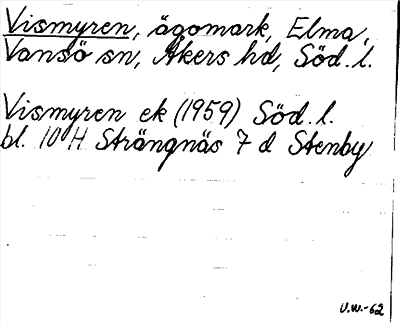 Vismyren, ägomark, Elma,
Vansö sn, Åkers hd, Söd. l.
Vismyren ek (1959) Söd. l.
bl. 10 H Strängnäs 7 d Stenby
U.W.-62